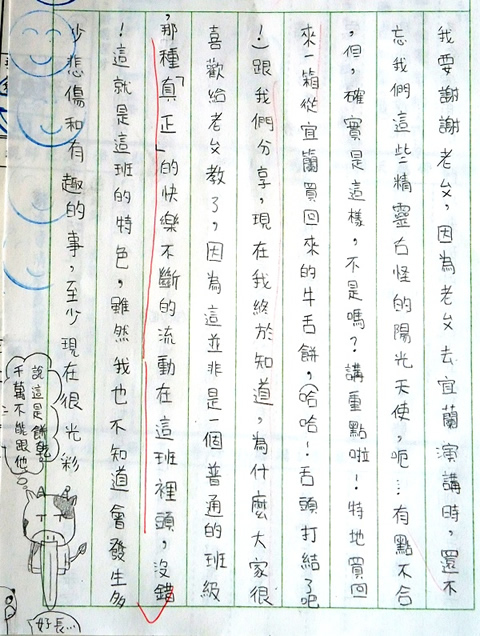 我要謝謝老ㄆ，因為老ㄆ去宜蘭演講時，還不
忘我們這些精靈古怪的陽光天使，呃…有點不合
，但，確實是這樣，不是嗎？講重點啦！特地買回
來一箱從宜蘭買回來的牛舌餅，（哈哈！舌頭打結了吧
！）跟我們分享，現在我終於知道，為什麼大家很
喜歡給老ㄆ教了，因為這並非是一個普通的班級
，那種「真正」的快樂不斷的流動在這班裡頭，沒錯
！這就是這班的特色，雖然我也不知道會發生多
少悲傷和有趣的事，至少現在很光彩
千萬不能跟他
說這是餅乾
好長…